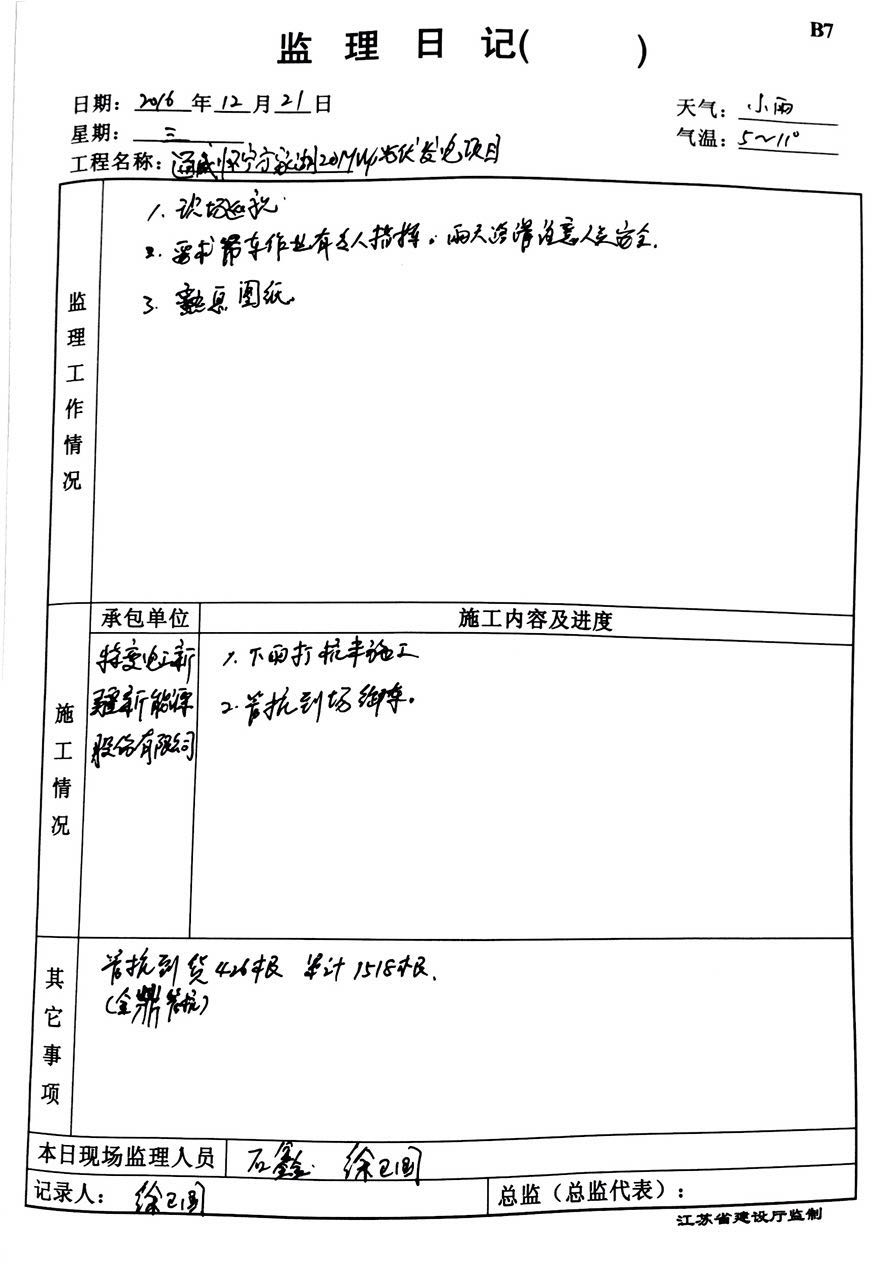 B7
监 理 日 记( )
日期：2016年12月21日
天气：小雨
星期：三
气温：5~11°
工程名称：通威怀宁 20MWp光伏发电项目
监理工作情况
1. 现场巡视
2. 要求吊车作业有专人指挥。雨天路滑注意人员安全.
3. 熟悉图纸。
施工情况
承包单位
施工内容及进度
特变电工新
疆新能源
股份有限公司
1. 下雨打桩未施工
2. 管桩到场卸车。
其它事项
管桩到货426根 累计1518根.
(金鼎管桩)
本日现场监理人员
石鑫 徐卫国
记录人：徐卫国
总监（总监代表）：
江苏省建设厅监制